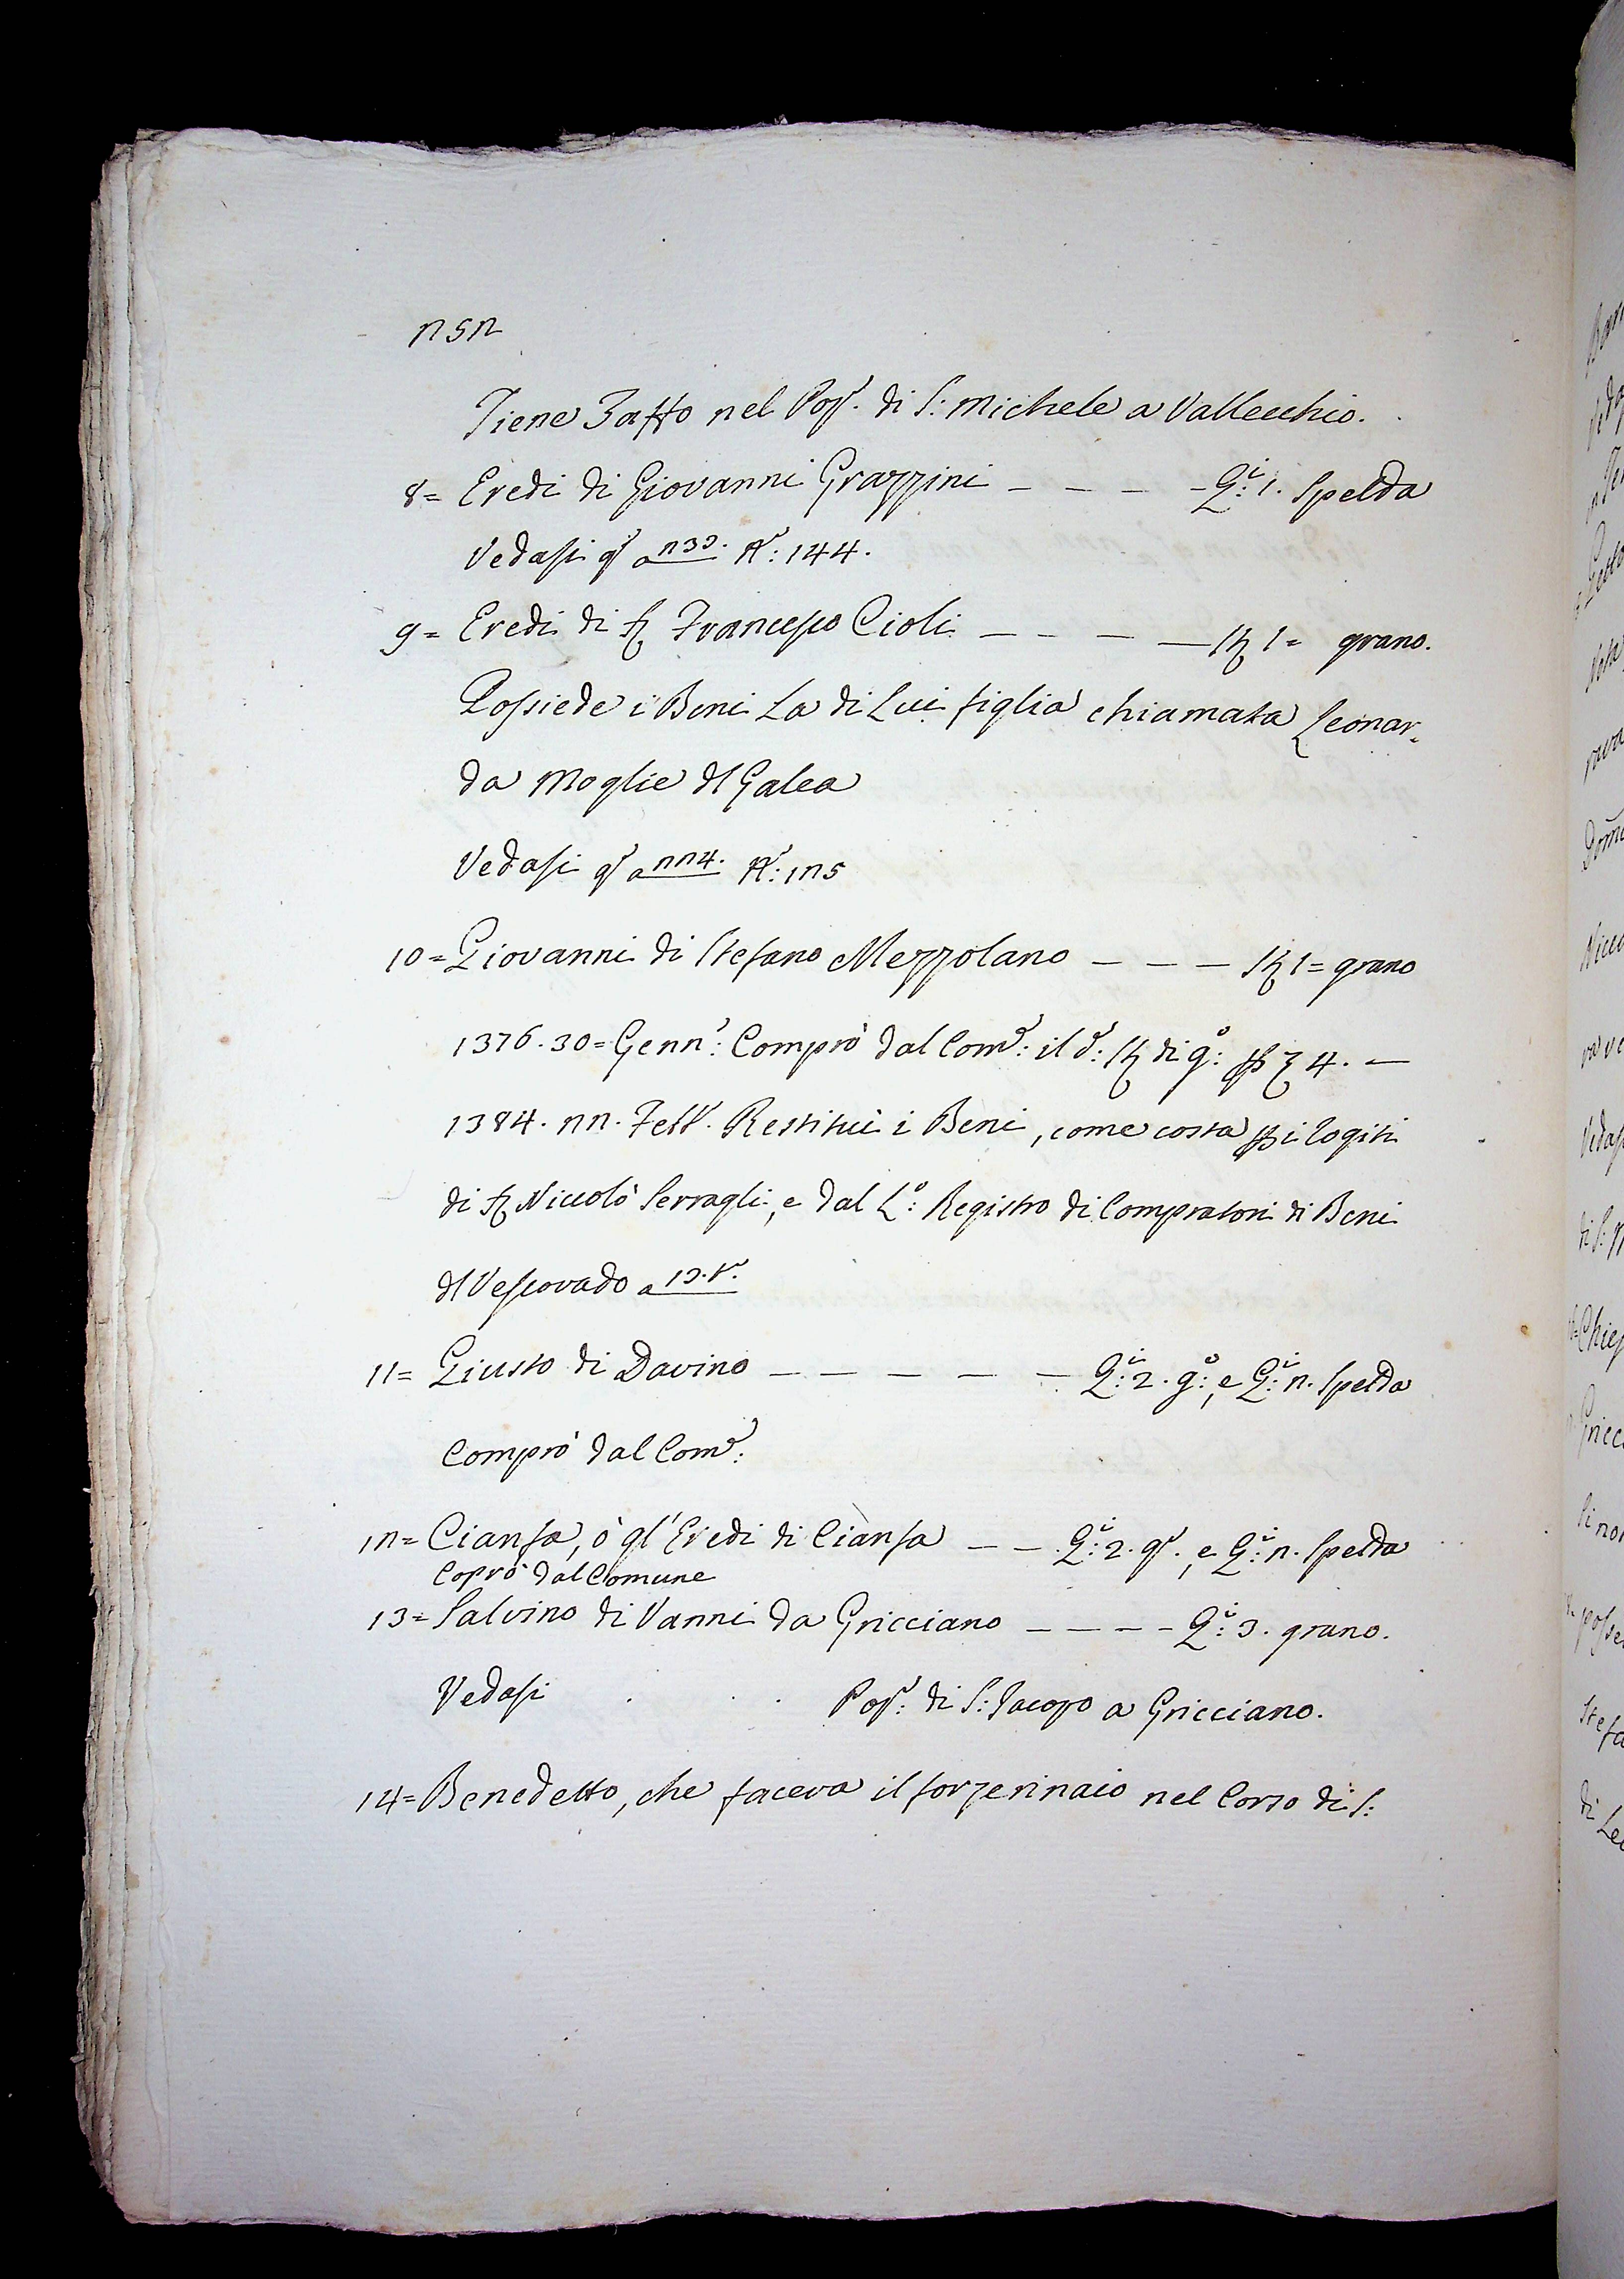 252
Tiene Zaffo nel Pop.° di S: Michele a Vallecchio.
8= Eredi di Giovanni Grazzini — — — — Q:i 1. Spelda
Vedasi q.° a 239. N.°: 144.
9= Eredi di Ser Francesco Cioli — — — — St 1= grano.
Possiede i Beni La di Lui figlia chiamata Leonar-
da Moglie del Galea
Vedasi q.° a 224. N.°: 125
10= Giovanni di Stefano Mezzolano — — — St 1= grano
1376. 30= Genn.°: Comprò dal Com.e: il d.°: St di g.°: 4. —
1384. 22. Febb.° Restituì i Beni, come costa i Rogiti
di Ser Niccolò Serragli, e dal L.°: Registro di Compratori di Beni
del Vescovado a 19. t.°
11= Giusto di Davino — — — — — Q:i 2. g.°:, e Q:i 2. Spelda
Comprò dal Com.e:
12= Cianfa, ò gl'Eredi di Cianfa — — Q:i 2. g.°., e Q:i 2. Spelda
Coprò dal Comune
13= Salvino di Vanni da Gricciano — — — — Q:i 3. grano.
Vedasi Pop.°: di S: Jacopo a Gricciano.
14= Benedetto, che faceva il forzerinaio nel Corso di S: